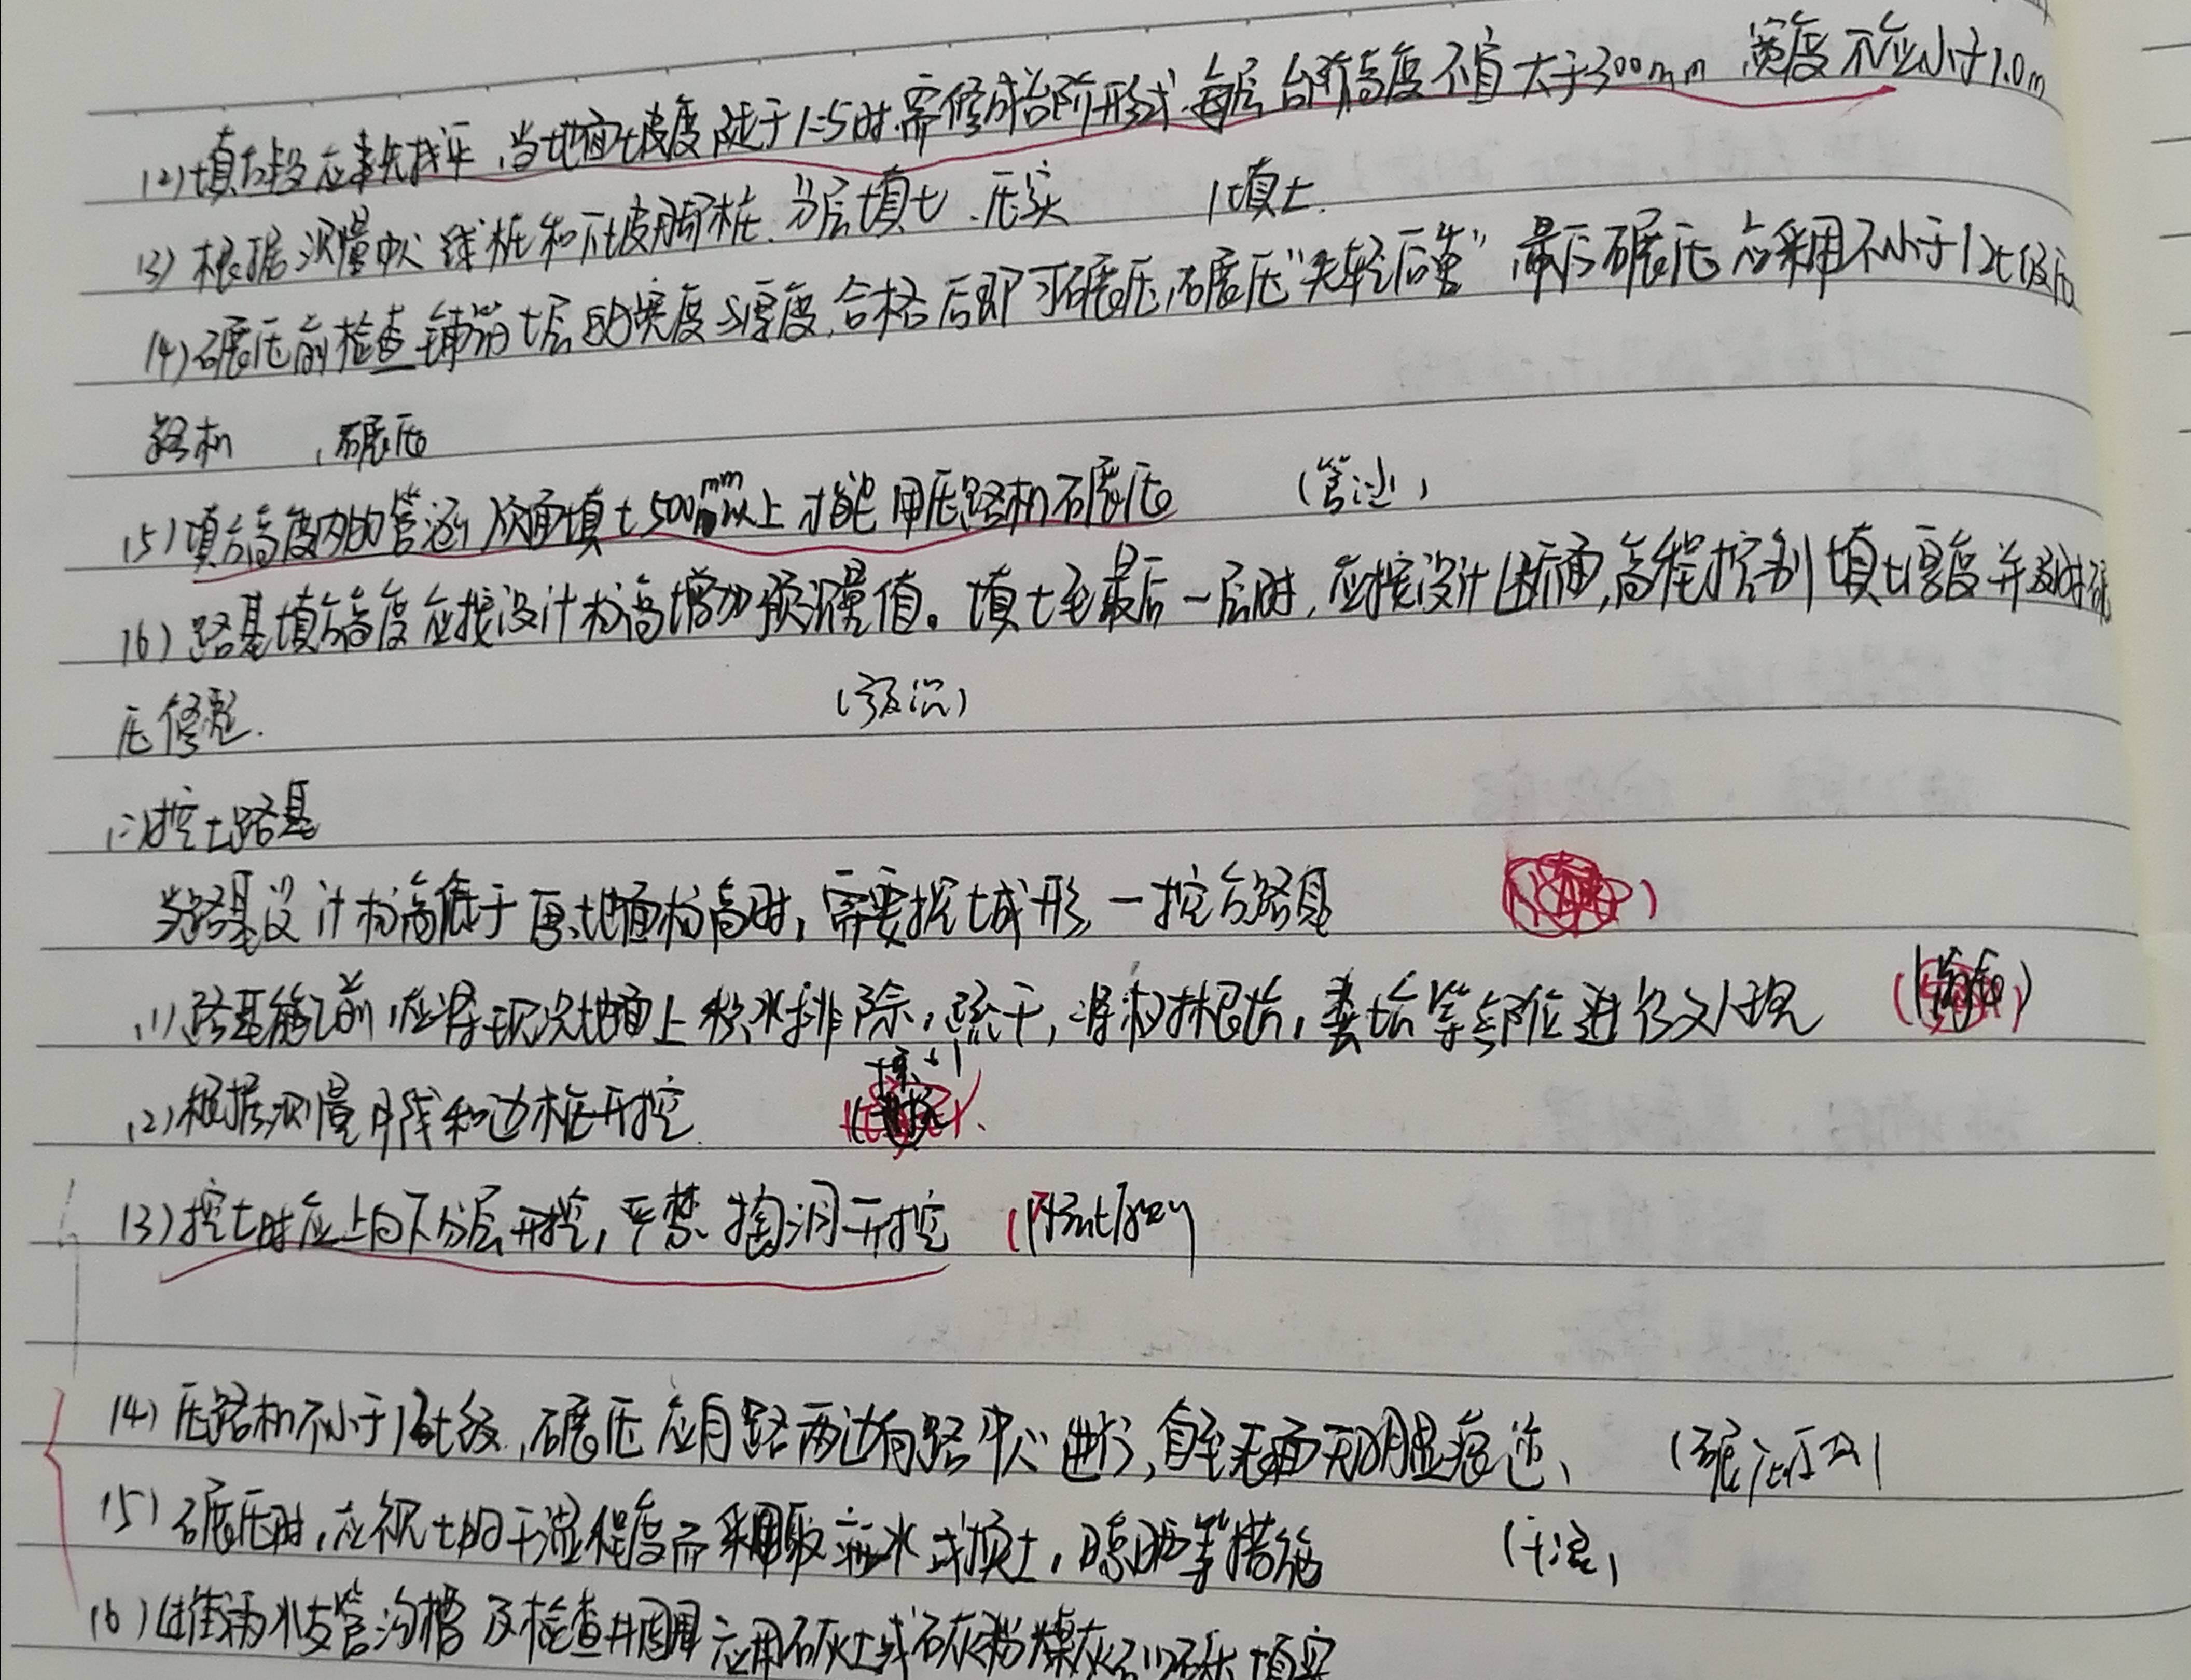 (2)填方段应事先找平,当地面坡度陡于1:5时.需修成台阶形式.每层台阶高度不宜大于300mm 宽度不应小于1.0m
(3)根据测量中心线桩和下坡脚桩.分层填土.压实 (填土.
(4)碾压前检查铺筑土层的宽度与厚度,合格后即可碾压,碾压"先轻后重" 最后碾压应采用不小于12t级压
路机 ,碾压
(5)填方高度内的管涵顶面填土500mm以上才能用压路机碾压 (管涵)
(6)路基填方高度应按设计标高增加预沉量值。填土至最后一层时,应按设计断面,高程控制填土厚度并及时碾
压修整.
(二)挖土路基
当路基设计标高低于原地面标高时,需要挖土成形—挖方路基
(1)路基施工前,应将现况地面上积水排除,疏干,将树根坑,粪坑等部位进行处理
(2)根据测量中线和边桩开挖
(3)挖土时应上向下分层开挖,严禁掏洞开挖
(4)压路机不小于12t级,碾压应自路两边向路中心进行,直至表面无明显痕迹、
(5)碾压时,应视土的干湿程度而采取洒水或换土,晾晒等措施 (干湿)
(6)过街雨水支管沟槽及检查井周围应用石灰土或石灰粉煤灰砂砾填实